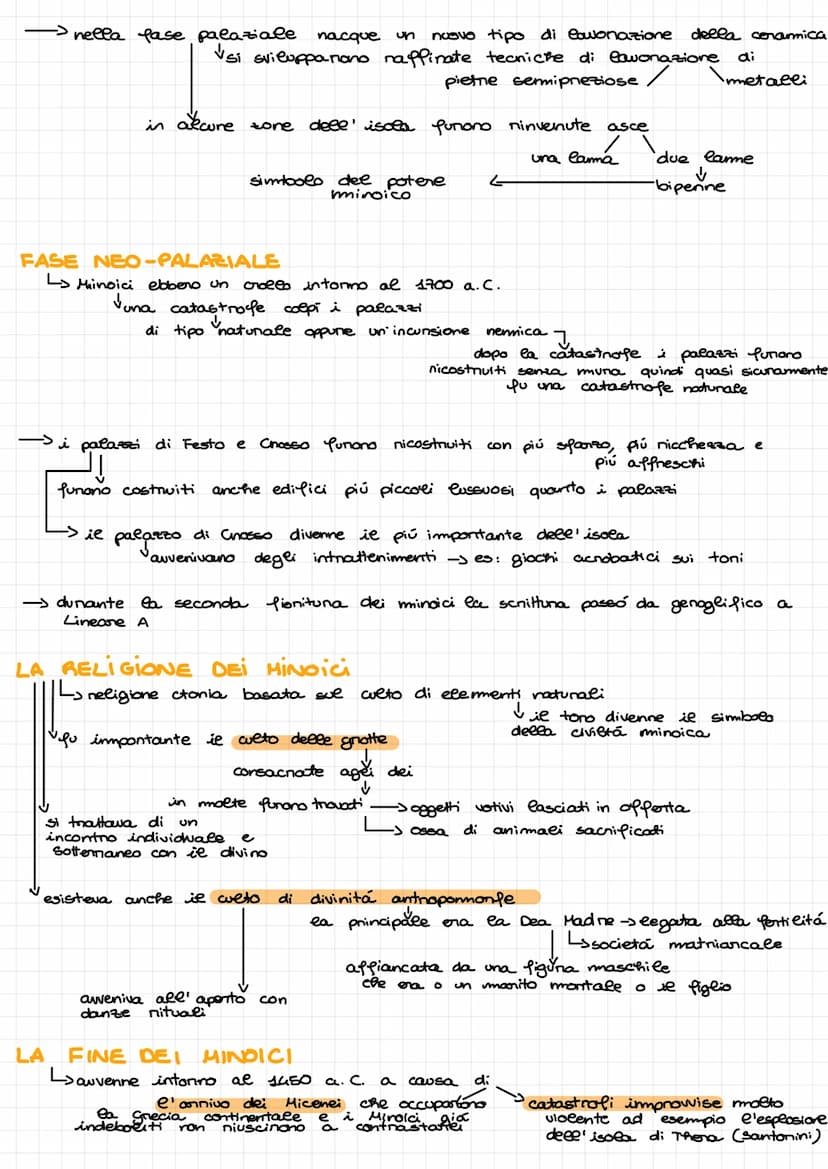 → nella fase palaziale nacque un nuovo tipo di lavorazione della ceramica
↓ si svilupparono raffinate tecniche di lavorazione di
pietre semipreziose metalli
in alcune zone dell'isola furono rinvenute asce
una lama due lame
simbolo del potere ← bipenne
minoico
FASE NEO-PALAZIALE
↳ Minoici ebbero un crollo intorno al 1700 a.C.
↓ una catastrofe colpì i palazzi
di tipo naturale oppure un'incursione nemica
dopo la catastrofe i palazzi furono
ricostruiti senza mura quindi quasi sicuramente
fu una catastrofe naturale
→ i palazzi di Festo e Cnosso furono ricostruiti con piú sfarzo, piú ricchezza e
piú affreschi
furono costruiti anche edifici piú piccoli lussuosi quanto i palazzi
→ il palazzo di Cnosso divenne il piú importante dell'isola
avvenivano degli intrattenimenti → es: giochi acrobatici sui tori
→ durante la seconda fioritura dei minoici la scrittura passó da geroglifico a
Lineare A
LA RELIGIONE DEI MINOICI
↳ religione ctonia basata sul culto di elementi naturali
↓ il toro divenne il simbolo
della civiltá minoica
fu importante il culto delle grotte
consacrate agli dei
in molte furono trovati → oggetti votivi lasciati in offerta
↳ ossa di animali sacrificati
si trattava di un
incontro individuale e
sotterraneo con il divino
esisteva anche il culto di divinitá antropomorfe
la principale era la Dea Madre → legata alla fertilitá
↳ societá matriarcale
affiancata da una figura maschile
che era o un marito mortale o il figlio
avveniva all'aperto con
danze rituali
LA FINE DEI MINOICI
↳ avvenne intorno al 1450 a.C. a causa di:
l'arrivo dei Micenei che occuparono
la grecia continentale e i Minoici già
indeboliti non riuscirono a contrastarli
catastrofi improvvise molto
violente ad esempio l'esplosione
dell'isola di Thera (Santorini)